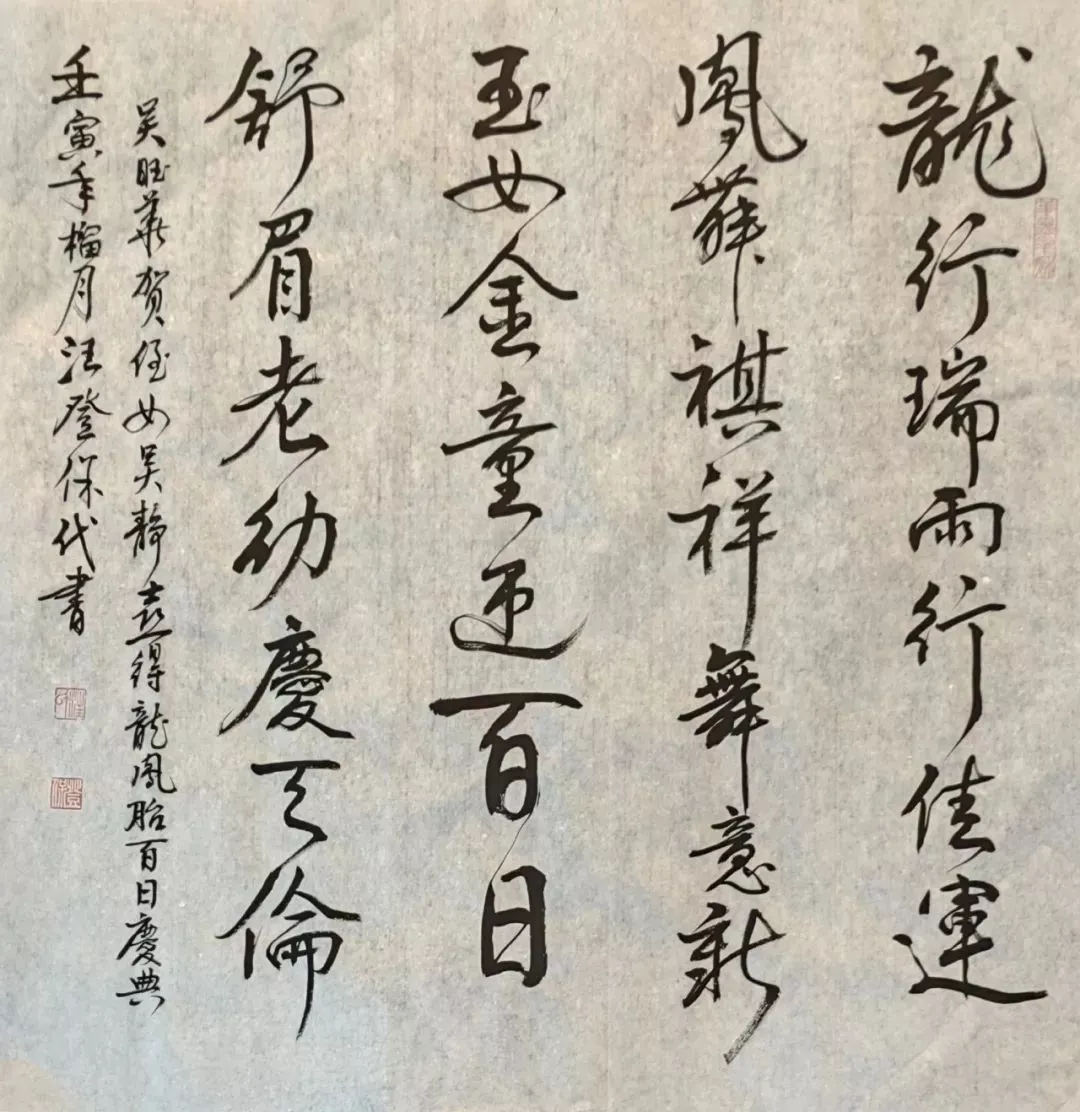 龍行瑞雨行佳運
鳳舞祺祥舞意新
玉女金童迎百日
舒眉老幼慶天倫
吴旺華贺侄女吴静喜得龍鳳胎百日慶典
壬寅年榴月汪登保代書